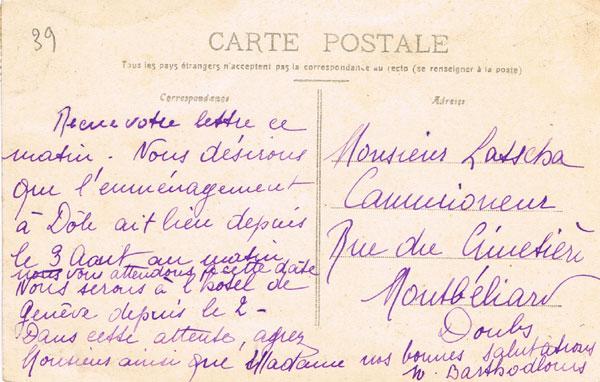 39
CARTE POSTALE
Tous les pays étrangers n'acceptent pas la correspondance au recto (se renseigner à la poste)
Correspondance
Recue votre lettre ce
matin. Nous désirons
que l'emménagement
à Dôle ait lieu depuis
le 3 Aout au matin
nous vous attendons à cette date
Nous serons à l'hotel de
Genève depuis le 2-
Dans cette attente, agrez
Monsieur ainsi que Madame nos bonnes salutations
Adresse
Monsieur Lasscha
Cammioneur
Rue du Cimetière
Montbéliard
Doubs